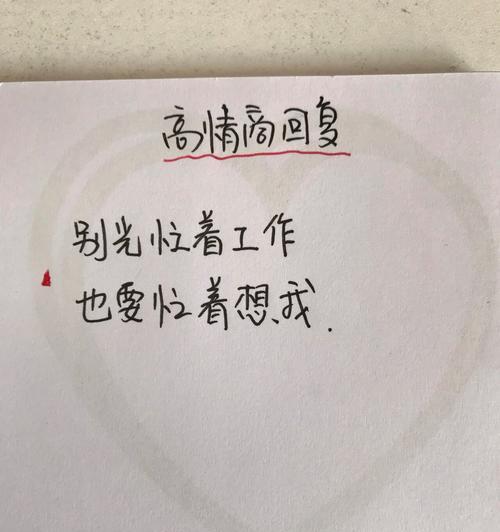 高情商回复
别光忙着工作
也要忙着想我.